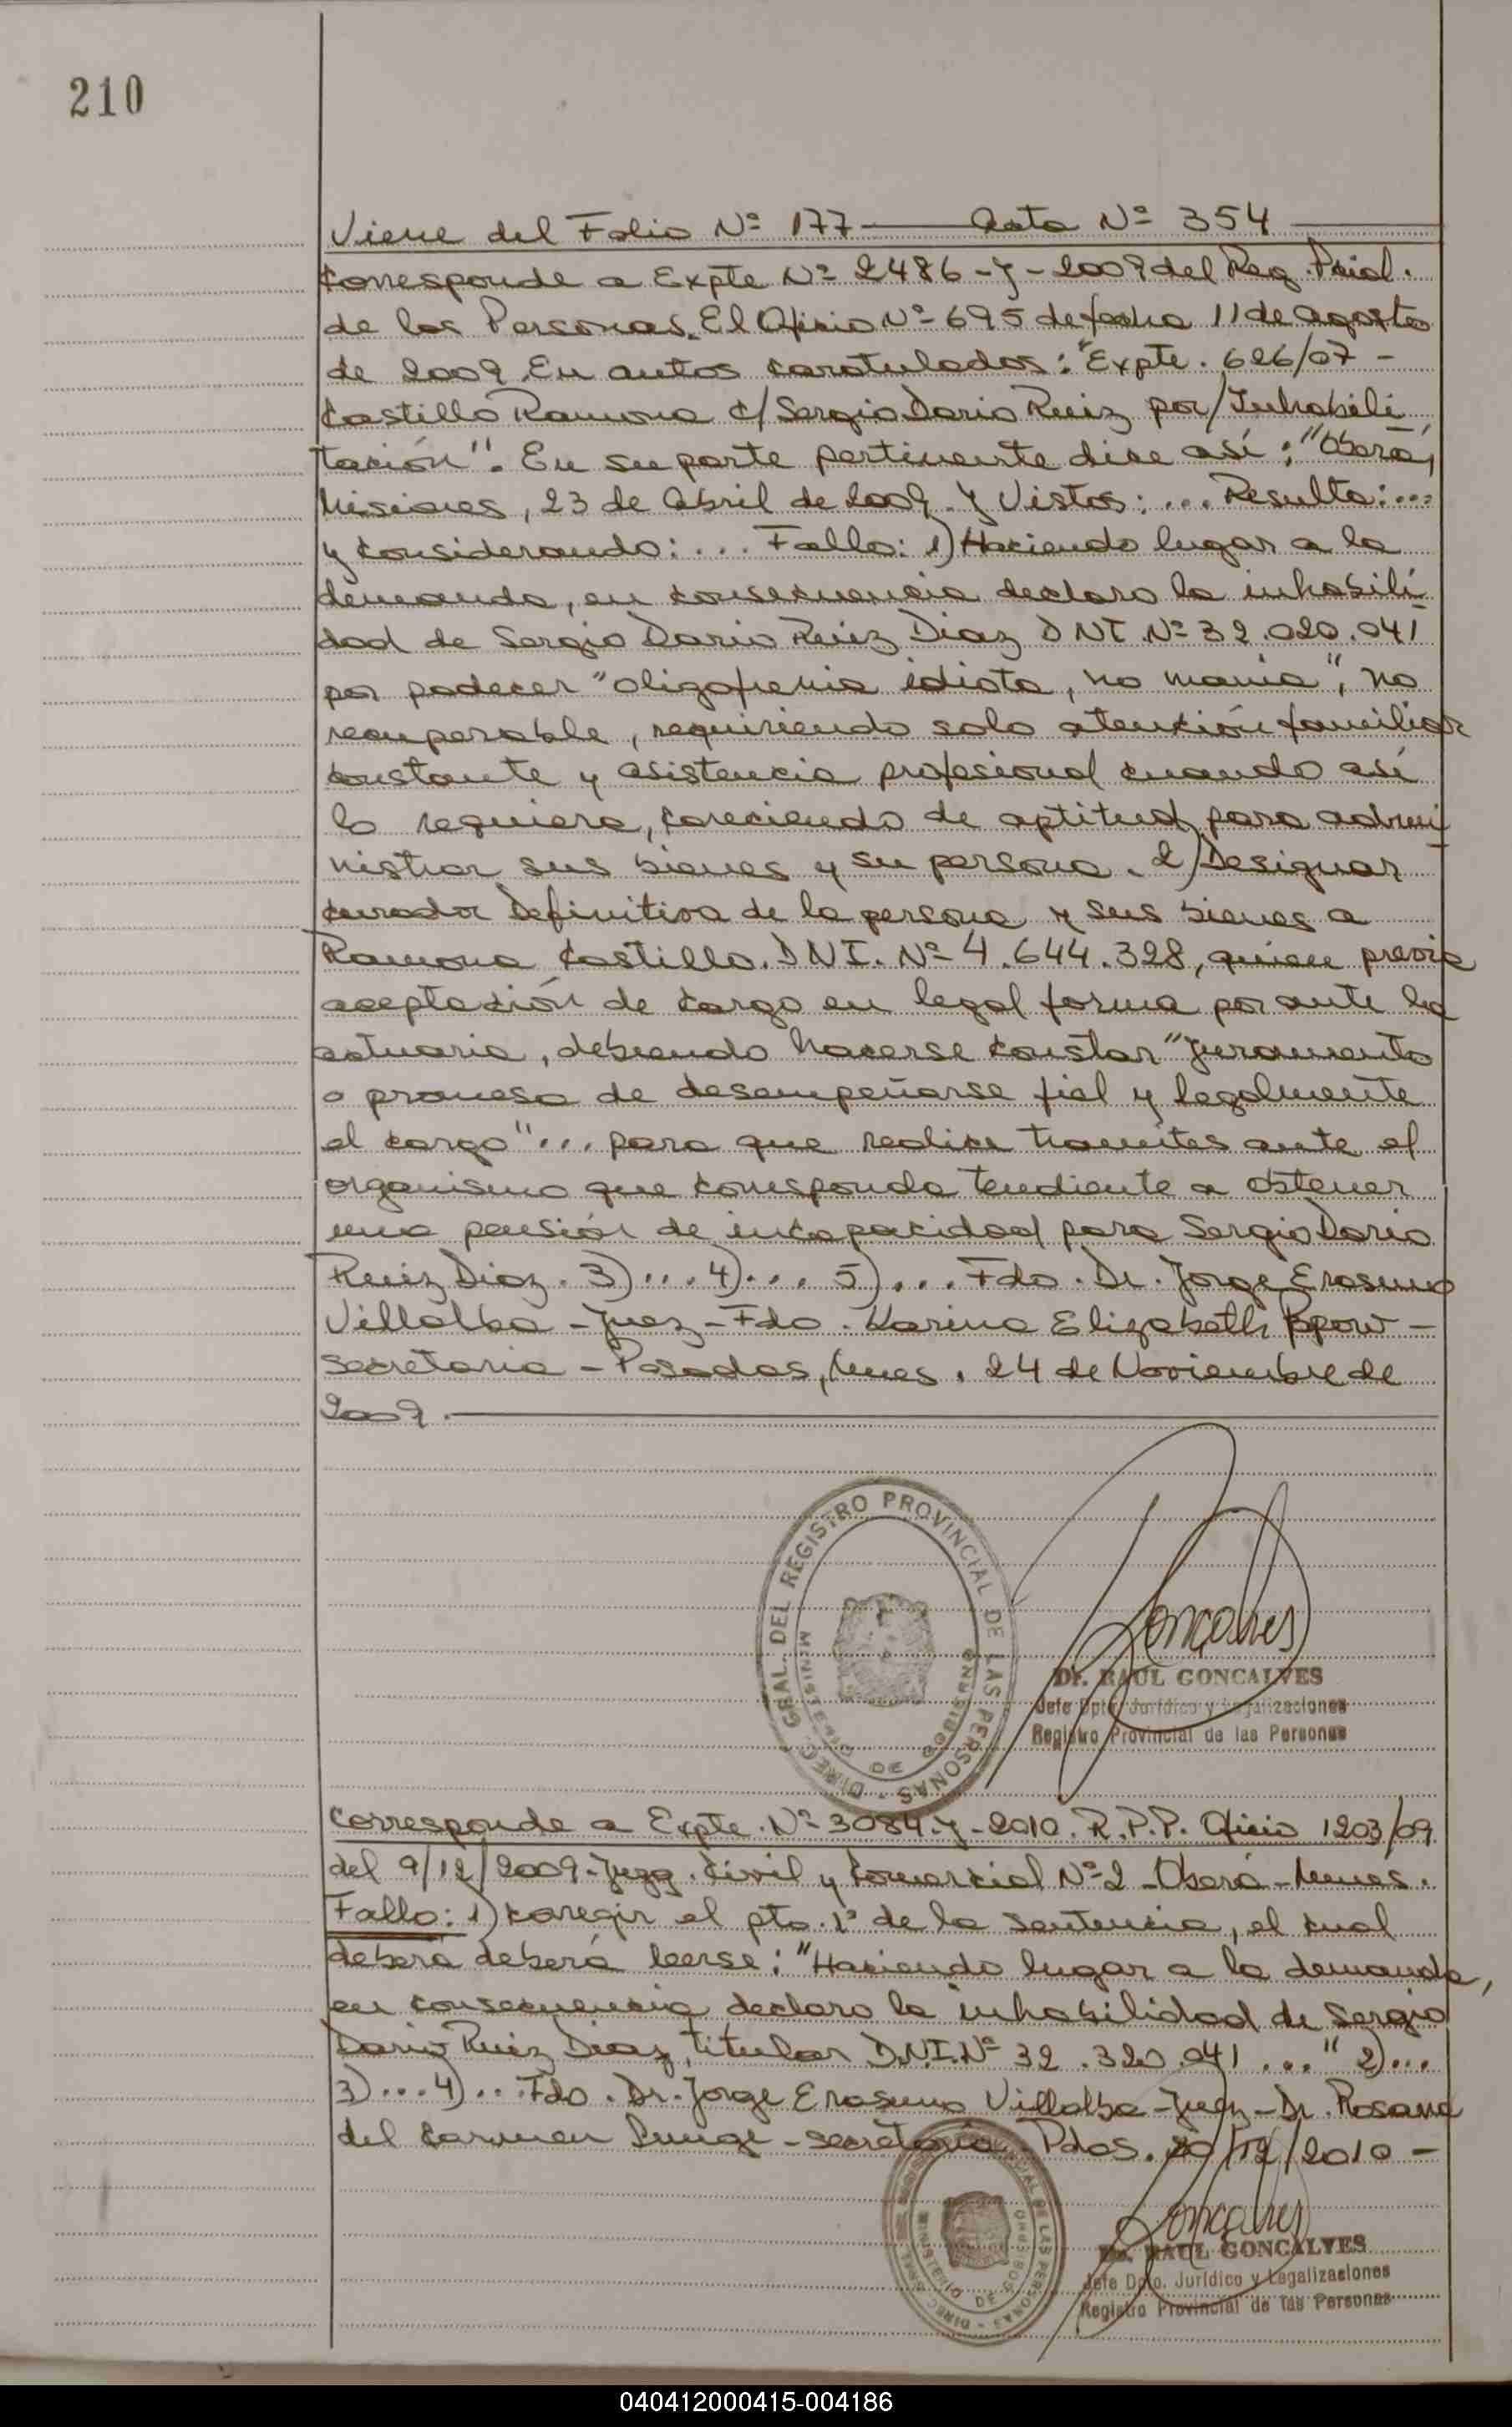 210
Viene del Folio Nº 177 — Acta Nº 354 —
Corresponde a Expte Nº 2486-J-2009 del Reg. Pcial.
de las Personas. El Oficio Nº 695 de fecha 11 de Agosto
de 2009. En autos caratulados: "Expte. 626/07 -
Castillo Ramona c/ Sergio Dario Ruiz por/ Inhabili
tación". En su parte pertinente dice así: "Oberá,
Misiones, 23 de Abril de 2009. Y Vistos: ... Resulta: ...
y considerando: ... Fallo: 1) Haciendo lugar a la
demanda, en consecuencia declaro la inhabili
dad de Sergio Dario Ruiz Diaz DNI. Nº 32.020.041
por padecer "oligofrenia idiota, no mania", no
recuperable, requiriendo solo atención familiar
constante y asistencia profesional cuando así
lo requiera, careciendo de aptitud para admi
nistrar sus bienes y su persona. 2) Designar
curador Definitiva de la persona y sus bienes a
Ramona Castillo. DNI. Nº 4.644.328, quien previa
aceptación de cargo en legal forma por ante la
actuaria, debiendo hacerse constar "juramento
o promesa de desempeñarse fiel y legalmente
el cargo" ... para que realice tramites ante el
organismo que corresponda tendiente a obtener
una pensión de incapacidad para Sergio Dario
Ruiz Diaz. 3) ... 4) ... 5) ... Fdo. Dr. Jorge Erasmo
Villalba - Juez - Fdo. Karina Elizabeth -
Secretaria - Posadas, Mnes. 24 de Noviembre de
2009. —
DIREC. GRAL. DEL REGISTRO PROVINCIAL DE LAS PERSONAS
MINISTERIO DE GOBIERNO
Goncalves
Dr. RAUL GONCALVES
Jefe Dpto. Jurídico y Legalizaciones
Registro Provincial de las Personas
Corresponde a Expte. Nº 3084-J-2010. R.P.P. Oficio 1203/09
del 9/12/2009 - Juzg. Civil y Comercial Nº 2 - Oberá - Mnes.
Fallo: 1) Corregir el pto. 1º de la Sentencia, el cual
deberá deberá leerse: "Haciendo lugar a la demanda,
en consecuencia declaro la inhabilidad de Sergio
Dario Ruiz Diaz, titular D.N.I. Nº 32.320.041 ..." 2) ...
3) ... 4) ... Fdo. Dr. Jorge Erasmo Villalba - Juez - Dr. Rosana
del Carmen - Secretaria - Pdas. 20/12/2010 -
DIREC. GRAL. DEL REGISTRO PROVINCIAL DE LAS PERSONAS
MINISTERIO DE GOBIERNO
Goncalves
Dr. RAUL GONCALVES
Jefe Dpto. Jurídico y Legalizaciones
Registro Provincial de las Personas
040412000415-004186